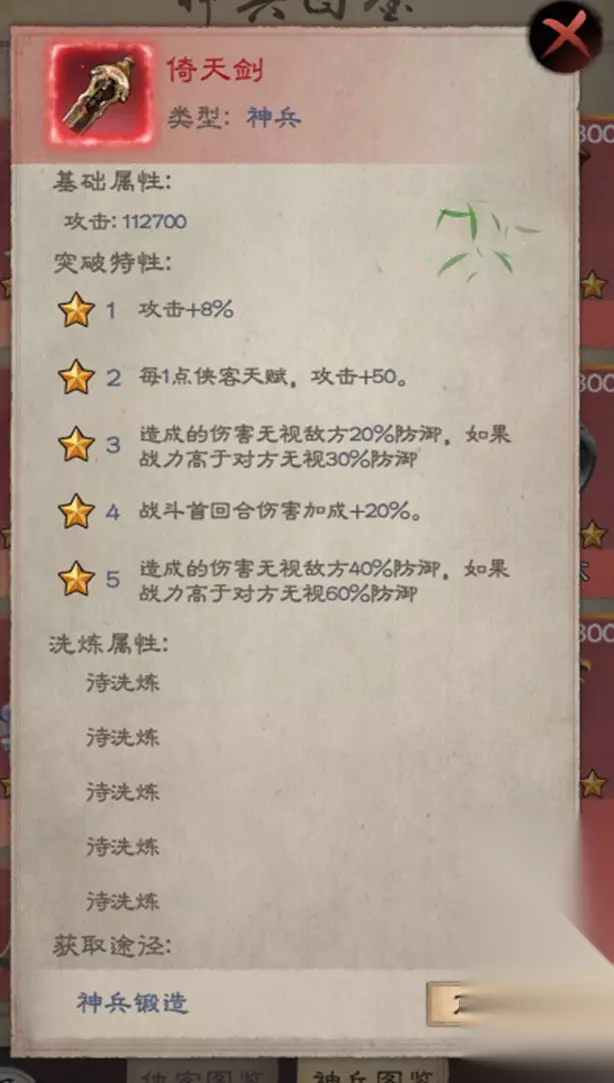 神兵图鉴
倚天剑
类型：神兵
300
基础属性：
攻击：112700
突破特性：
1 攻击+8%
2 每1点侠客天赋，攻击+50。
300
3 造成的伤害无视敌方20%防御，如果
战力高于对方无视30%防御
4 战斗首回合伤害加成+20%。
5 造成的伤害无视敌方40%防御，如果
战力高于对方无视60%防御
300
洗炼属性：
待洗炼
待洗炼
待洗炼
待洗炼
待洗炼
获取途径：
神兵锻造
侠客图鉴
神兵图鉴